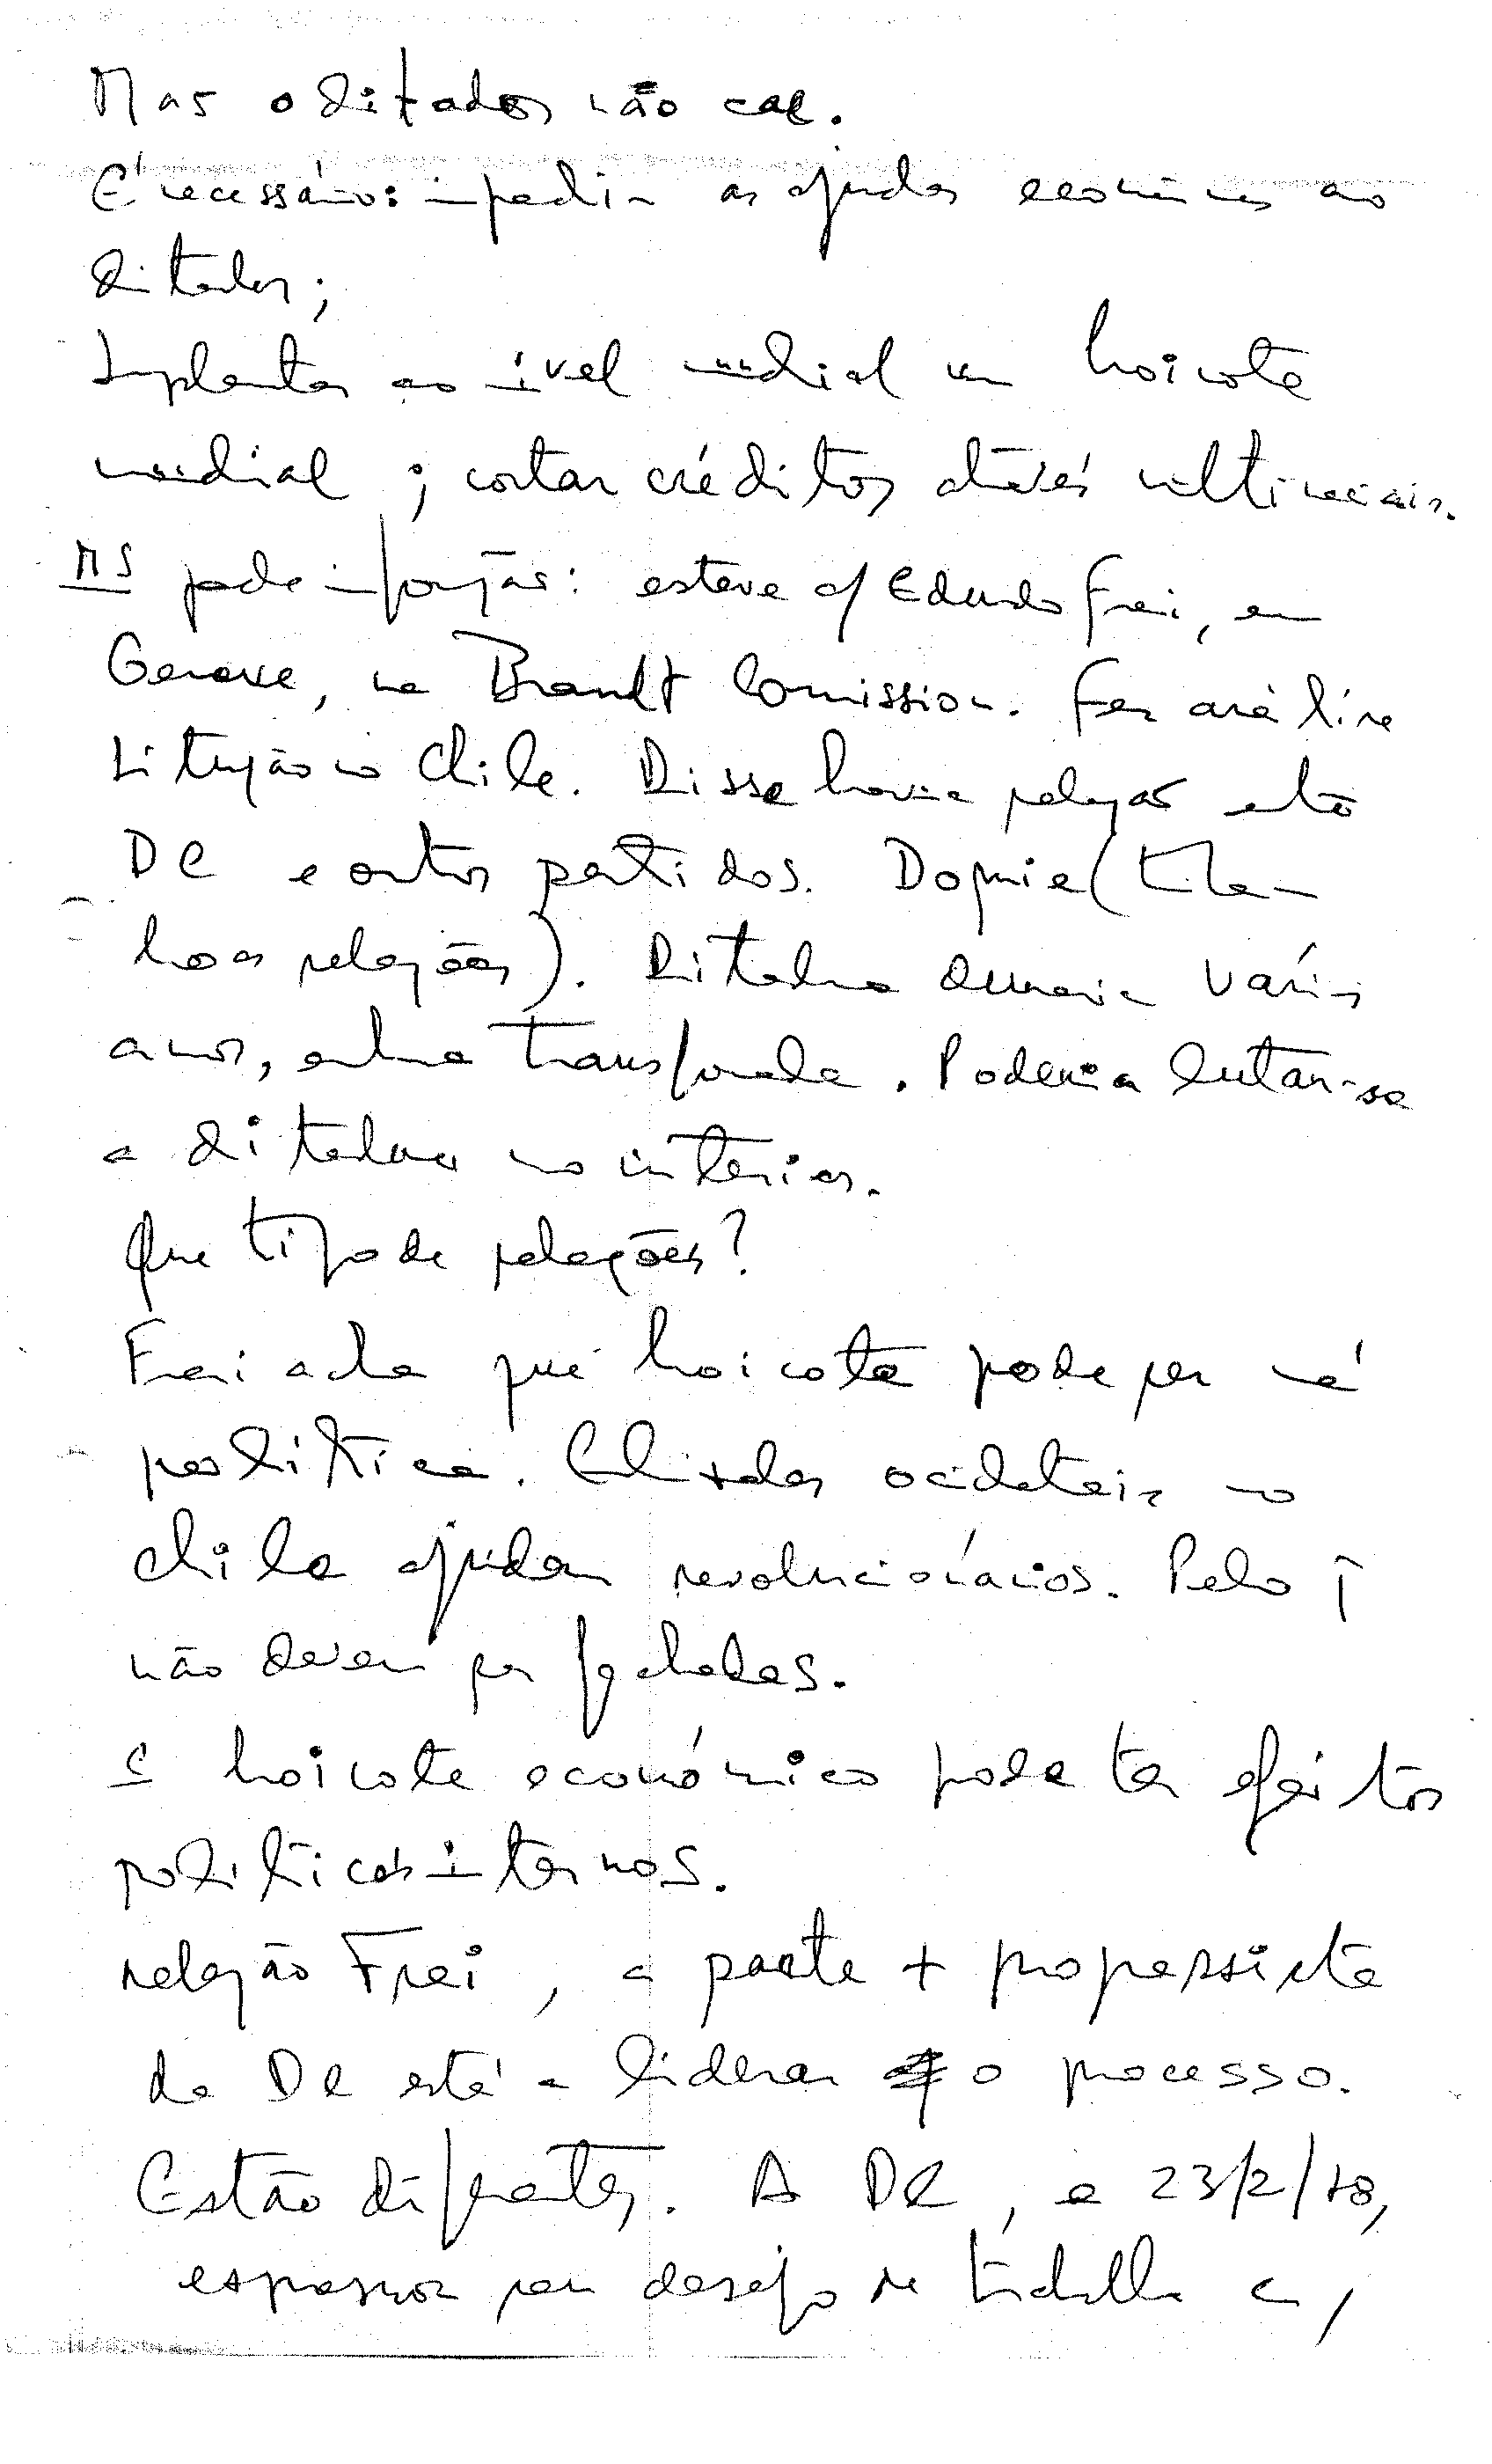 Mas o ditador não cai.
É necessário: impedir as ajudas económicas ao
ditador;
Implantar ao nível mundial um boicote
mundial; cortar créditos através multinacionais.
MS pede informações: esteve c/ Eduardo Frei, em
Geneve, na Brandt Comission. Fez análise
situação no Chile. Disse havia relações entre
DC e outros partidos. Dopmie (tinham
boas relações). Ditadura duraria vários
anos, embora transformada. Poderia lutar-se
a ditadura no interior.
Que tipo de relações?
Frei acha que boicote pode ser má
política. Entidades ocidentais no
Chile ajudam revolucionários. Pelo
não devem ser fechadas.
C boicote económico pode ter efeitos
políticos internos.
relação Frei, a parte + progressista
da DC está a liderar o processo.
Estão diferentes. A DC, a 23/2/78,
expressou seu desejo de trabalhar c/